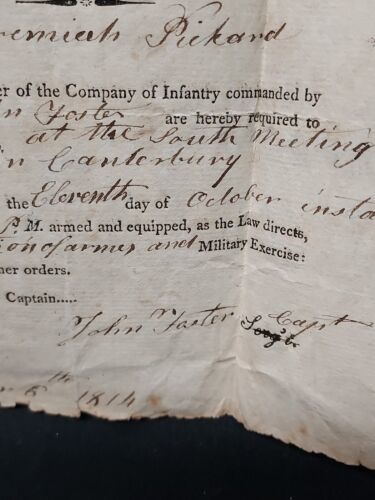 remiah Pickard
er of the Company of Infantry commanded by
n Foster are hereby required to
at the South Meeting
n Canterbury
the Eleventh day of October insta
P. M. armed and equipped, as the Law directs,
ion of armes and Military Exercise:
her orders.
Captain.....
John Foster Capt
Serg't.
8th 1814